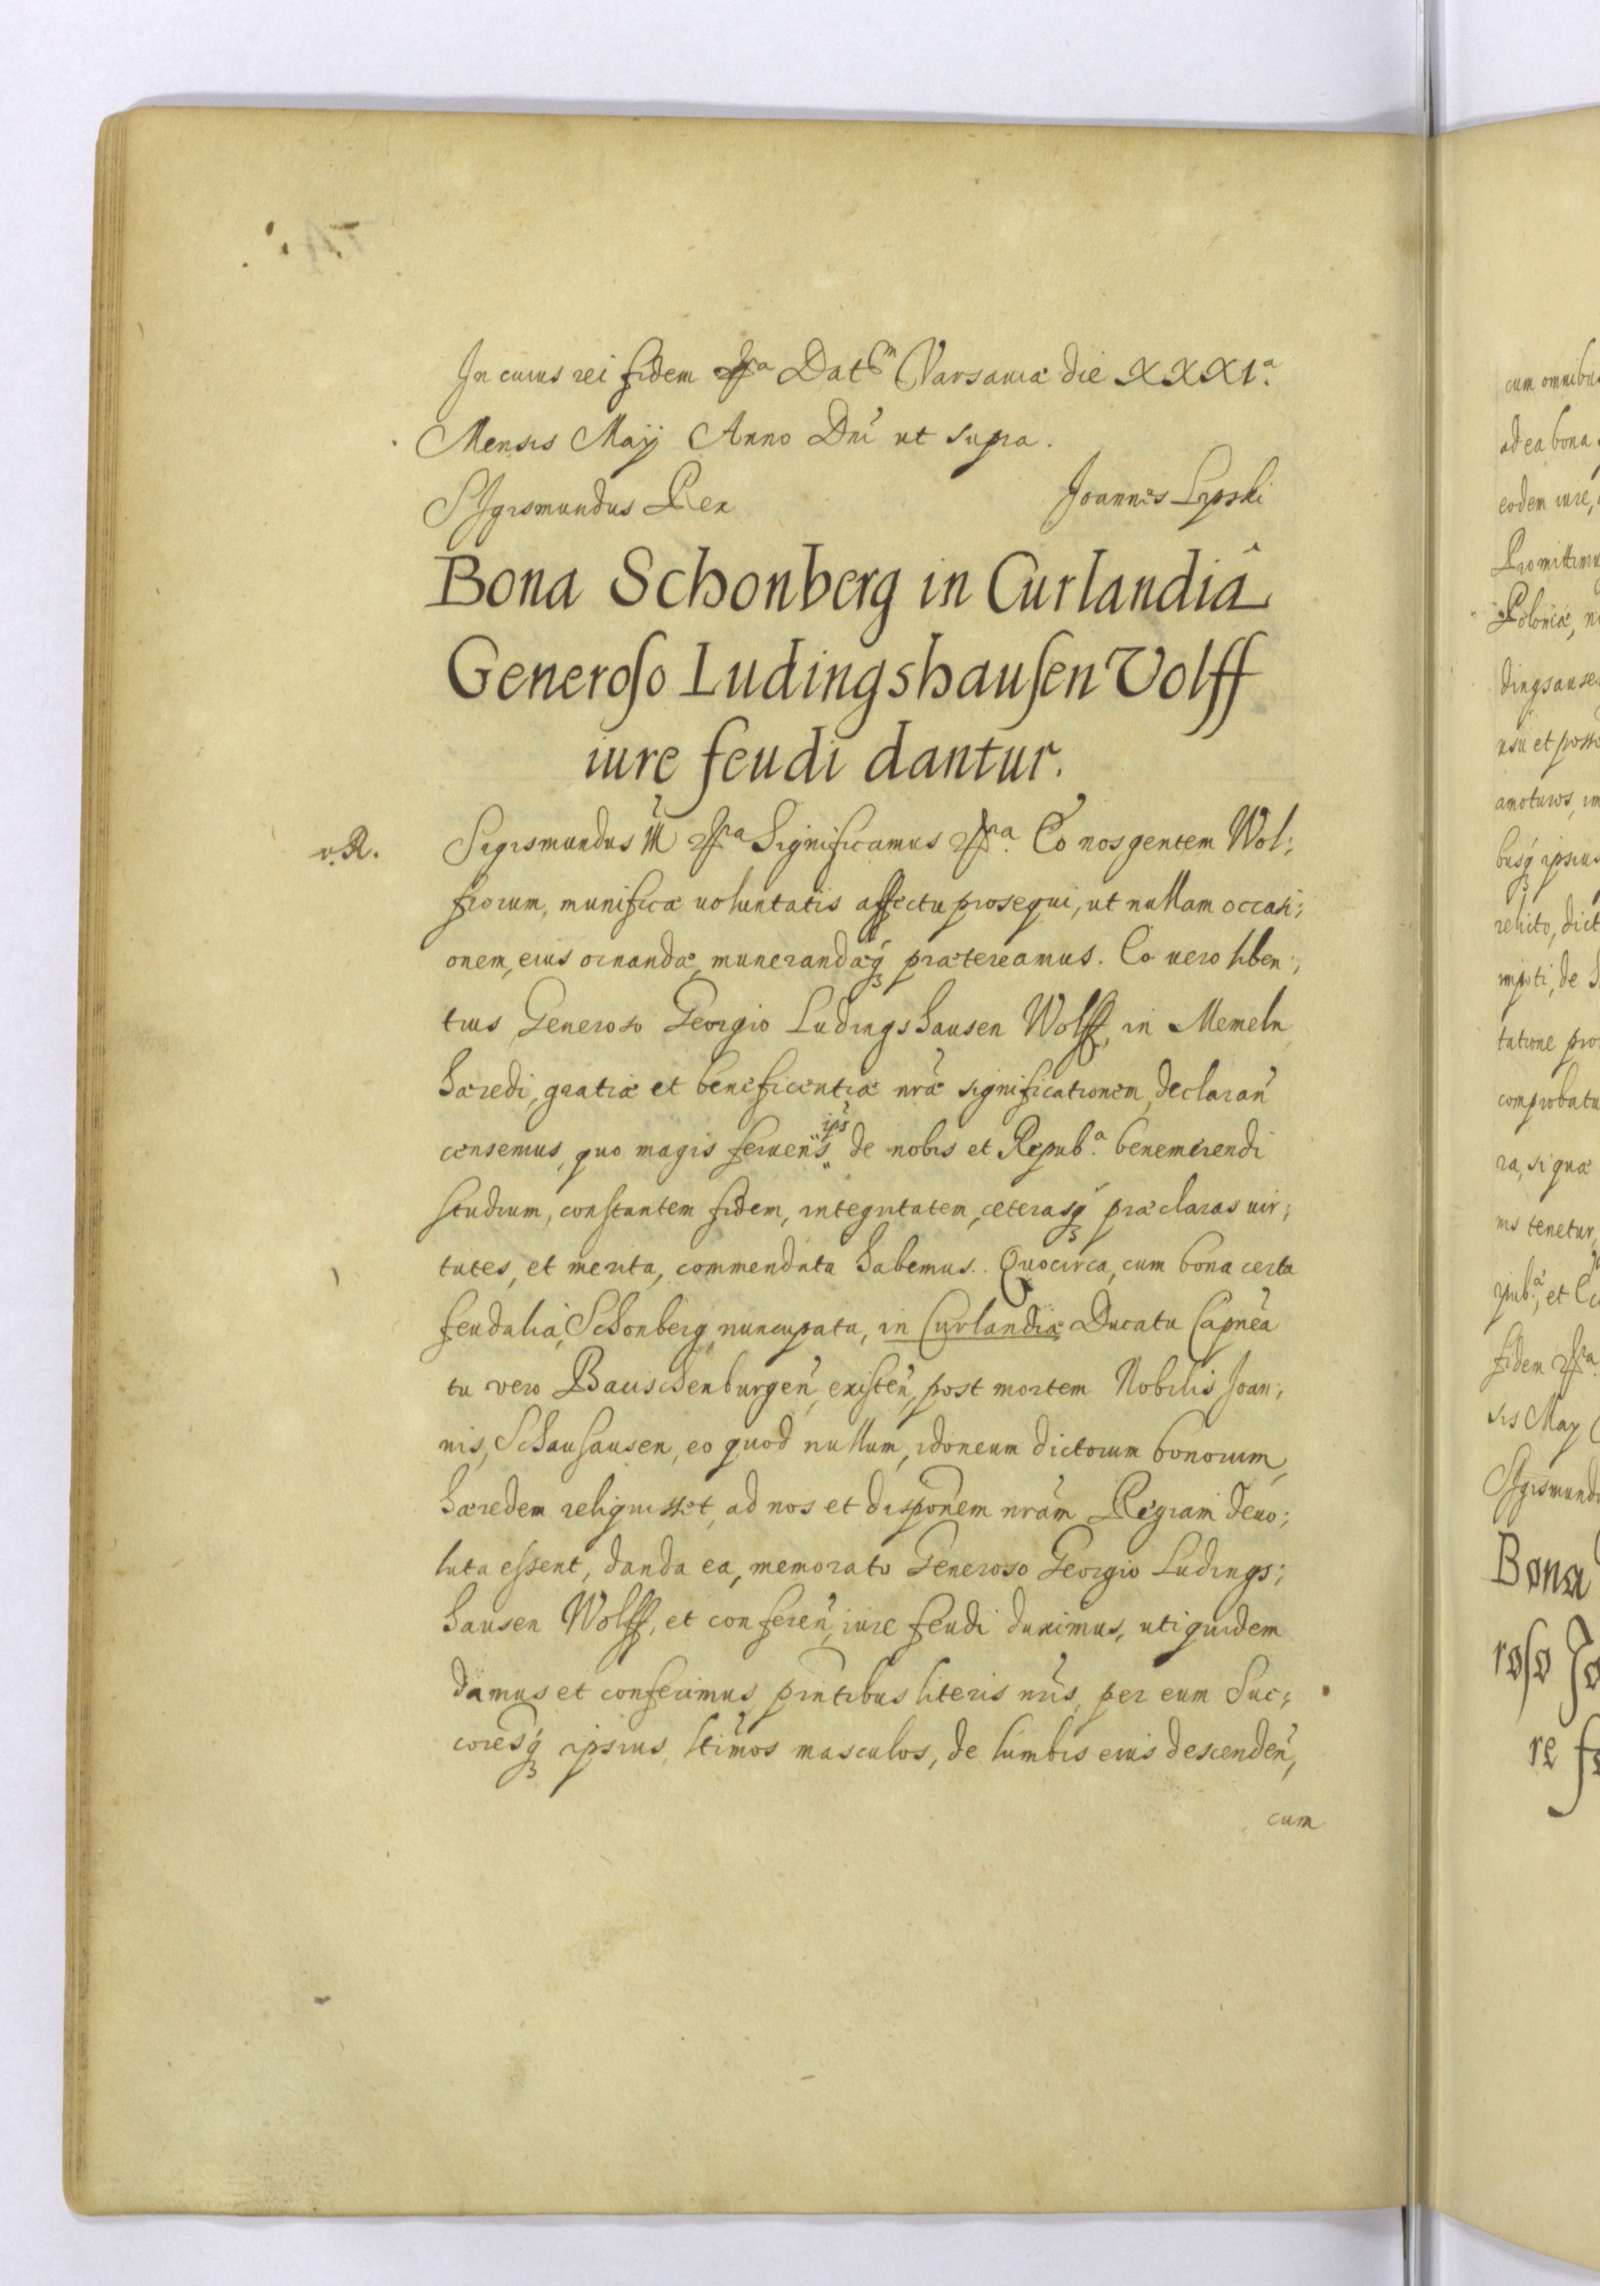 In cuius rei fidem &ra Datm Varsaviæ die XXXIa.
Mensis Maÿ Anno Dni ut supra.
SIgismundus Rex
Joannes Lipski
Bona Schonberg in Curlandiâ
Generoso Ludingshausen Volff
iure feudi dantur.
v.R.
Sigismundus III &ra Significamus &ra. Eo nos gentem Wol;
fiorum, munificæ voluntatis affectu prosequi, ut nullam occasi;
onem, eius ornandæ, munerandæq3 prætereamus. Eo uero liben;
tius Generoso Georgio Ludingshausen Wolff, in Memeln
hæredi, gratiæ et beneficentiæ nræ significationem, declaran
censemus, quo magis feruens ips de nobis et Repub.a benemerendi
studium, constantem fidem, integritatem, ceterasq3 præclaras uir;
tutes, et merita, commendata habemus. Quocirca, cum bona certa
feudalia, Schonberg nuncupata, in Curlandiæ Ducatu Capnea
tu vero Bauschenburgen, existen, post mortem Nobilis Joan;
nis, Schauhausen, eo quod nullum, idoneum dictorum bonorum,
hæredem reliquisset, ad nos et disponem nram Regiam deuo;
luta essent, danda ea, memorato Generoso Georgio Ludings;
hausen Wolff, et conferen, iure feudi duximus, uti quidem
damus et conferimus pntibus literis nris, per eum Suc;
coresq3 ipsius, ltimos masculos, de lumbis eius descenden,
cum
cum omnibus
ad ea bona
eodem iure,
Promittimus
Poloniæ,
dingsausen
usu et posse
amoturos, im
busq3 ipsius
relicto, dict
de
tatione pro
comprobatu
ra, si quæ
ris tenetur,
pub.a, et
fidem &ra.
sis May
SIgismund
Bona
roso Jo
re fe